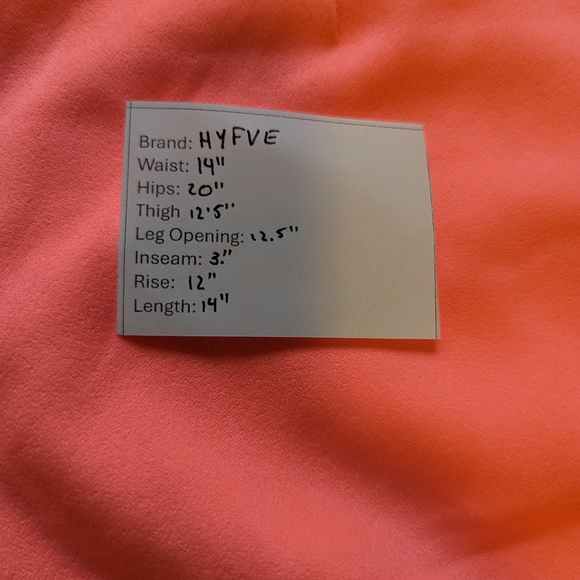 Brand: HYFVE
Waist: 14"
Hips: 20"
Thigh 12'5"
Leg Opening: 12.5"
Inseam: 3."
Rise: 12"
Length: 14"